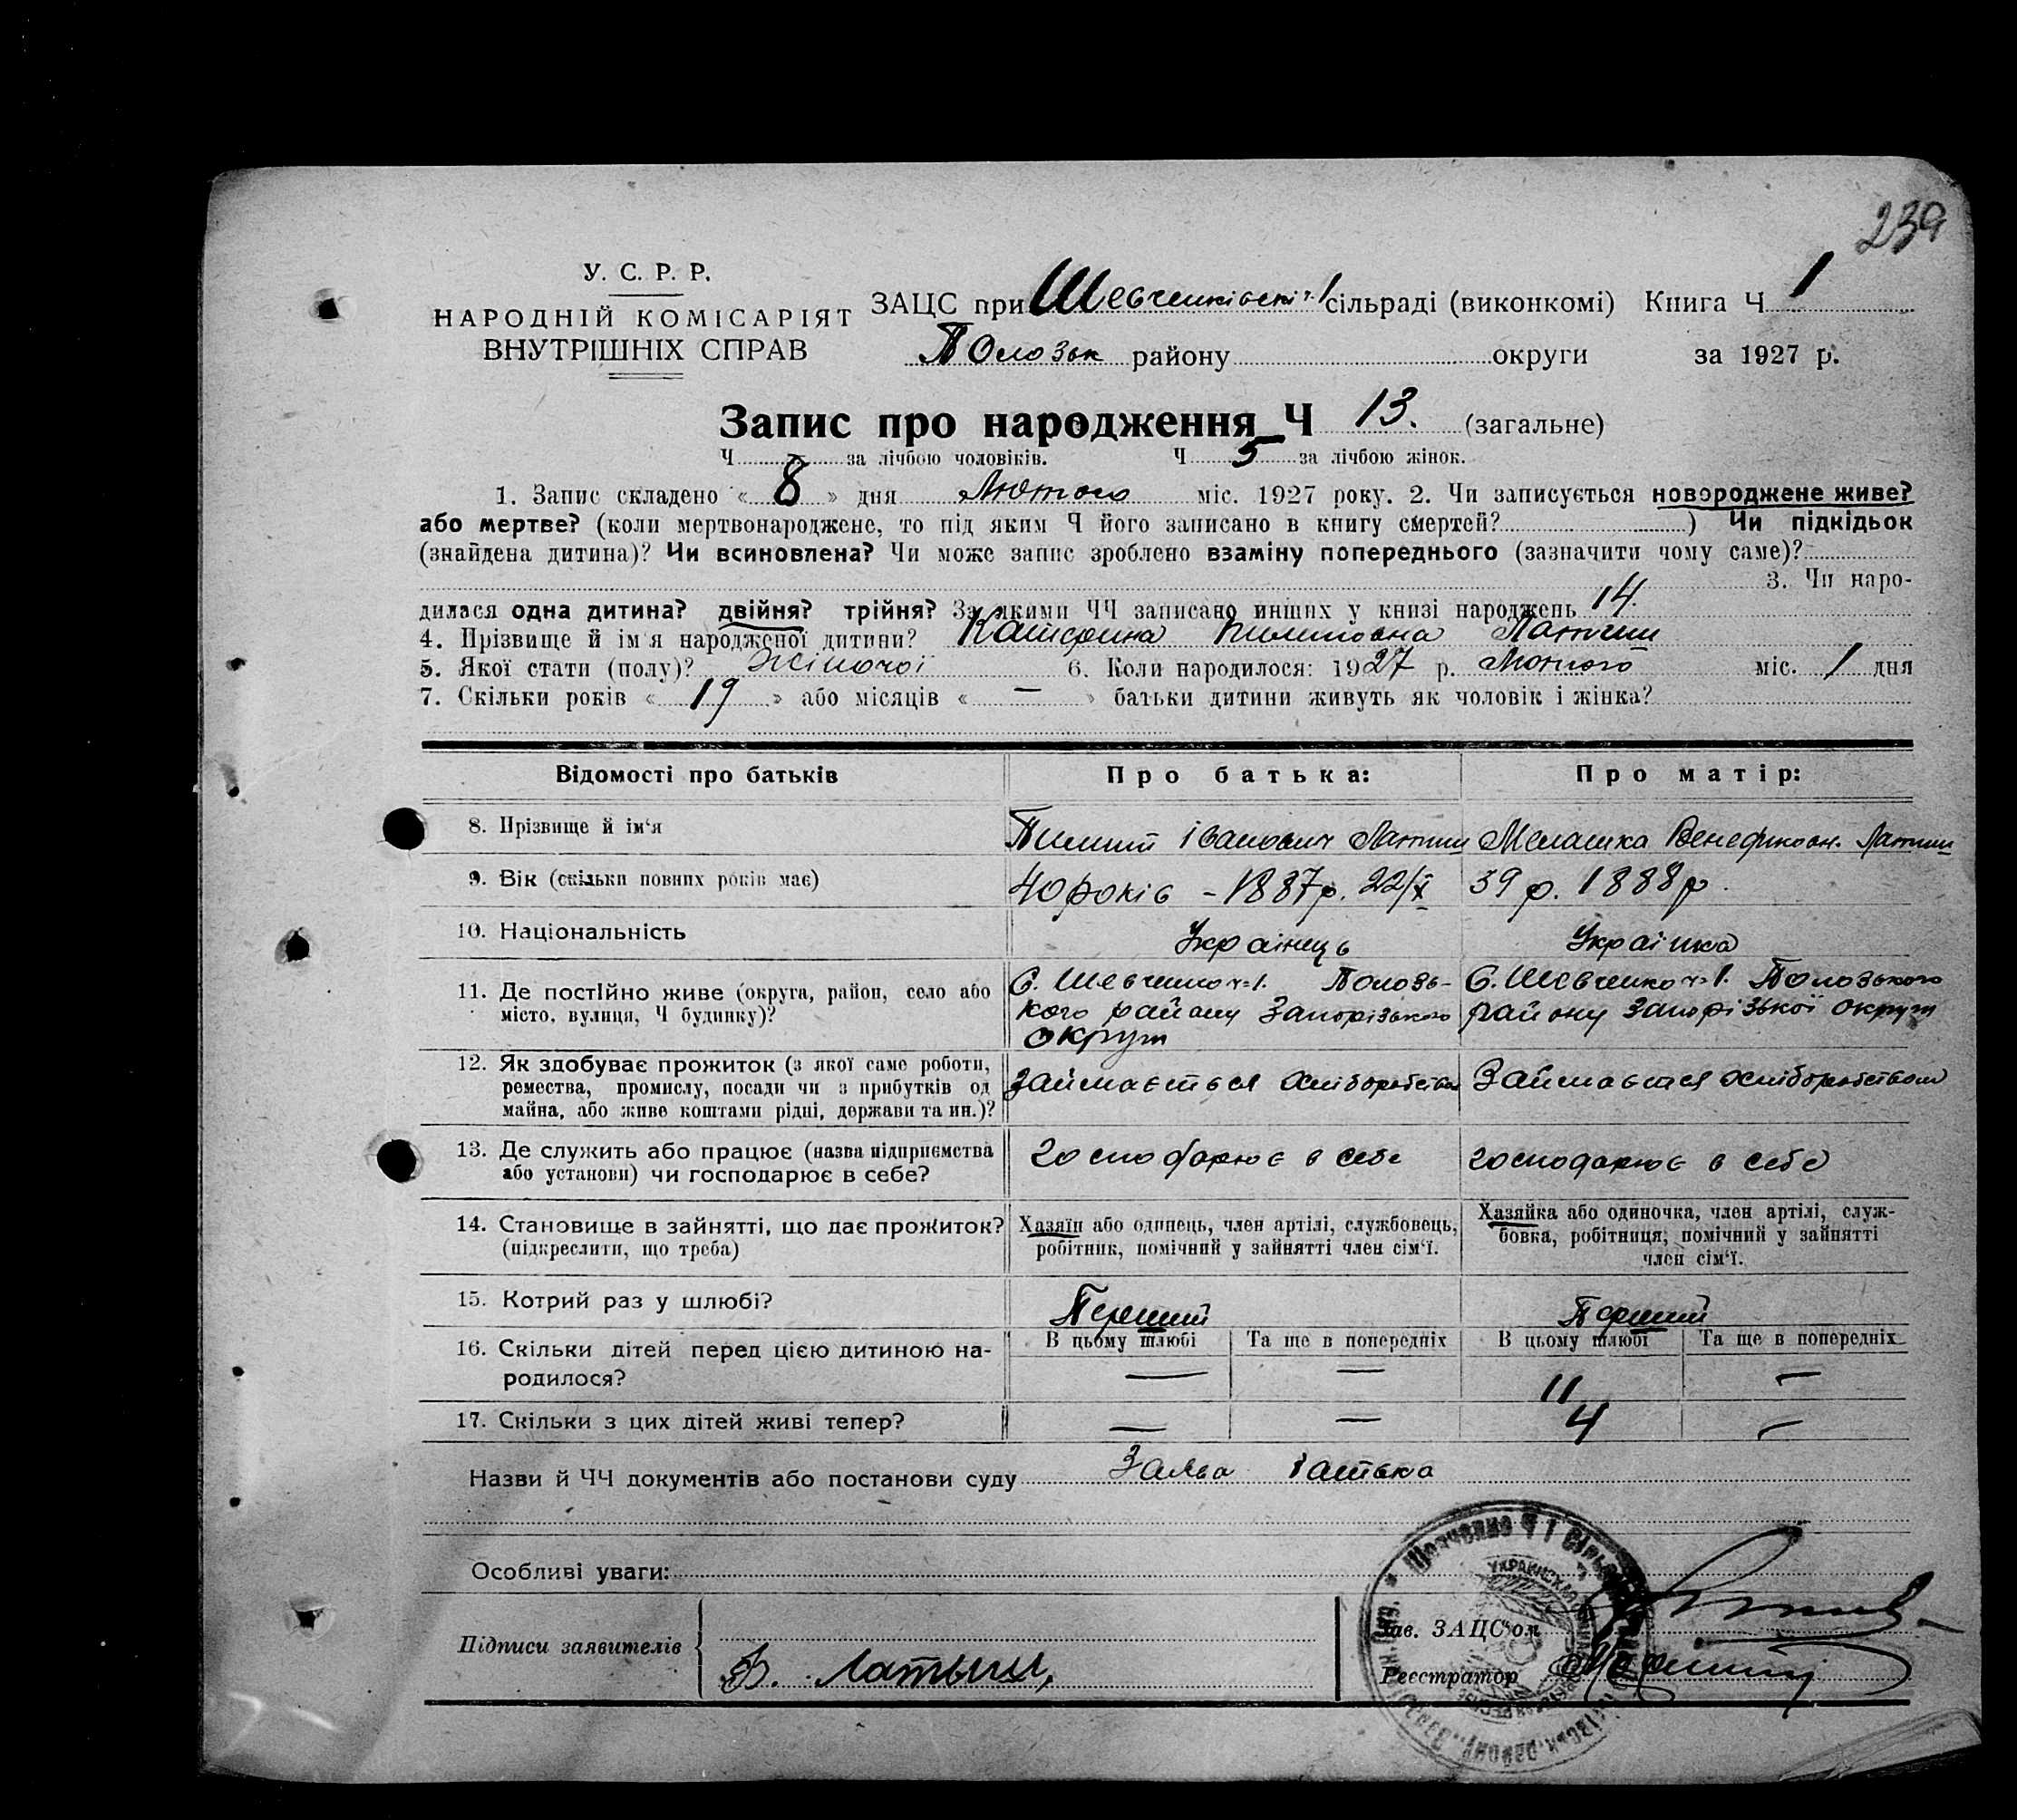 239
У. С. Р. Р.
НАРОДНІЙ КОМІСАРІЯТ
ВНУТРІШНІХ СПРАВ
ЗАЦС при Шевченківські ч.1 сільраді (виконкомі) Книга Ч 1
Полозьк району округи за 1927 р.
Запис про народження Ч 13. (загальне)
Ч за лічбою чоловіків. Ч 5 за лічбою жінок.
1. Запис складено « 8 » дня Лютого міс. 1927 року. 2. Чи записується новороджене живе?
або мертве? (коли мертвонароджене, то під яким Ч його записано в книгу смертей? ) Чи підкідьок
(знайдена дитина)? Чи всиновлена? Чи може запис зроблено взаміну попереднього (зазначити чому саме)?
3. Чи наро-
дилася одна дитина? двійня? трійня? За якими ЧЧ записано инших у книзі народжень 14.
4. Прізвище й ім'я народженої дитини? Катерина Пилиповна Латиш
5. Якої стати (полу)? Жіночої 6. Коли народилося: 1927 р. Лютого міс. 1 дня
7. Скільки років « 19 » або місяців « — » батьки дитини живуть як чоловік і жінка?
Відомості про батьків Про батька: Про матір:
8. Прізвище й ім'я Пилип Іванович Латиш Мелашка Латиш
9. Вік (скільки повних років має) 40 років - 1887 р. 22/X 39 р. 1888 р.
10. Національність Українець Українка
11. Де постійно живе (округа, район, село або місто, вулиця, Ч будинку)?
С. Шевченко ч=1. Полозь-
кого району Запорізького
округи
С. Шевченко ч=1. Полозького
району Запорізької округи
12. Як здобуває прожиток (з якої саме роботи,
ремества, промислу, посади чи з прибутків од
майна, або живе коштами рідні, держави та ин.)?
Займається хліборобством Займається хліборобством
13. Де служить або працює (назва підприємства
або установи) чи господарює в себе?
господарює в себе господарює в себе
14. Становище в зайнятті, що дає прожиток?
(підкреслити, що треба)
Хазяїн або одинець, член артілі, службовець,
робітник, помічний у зайнятті член сім'ї.
Хазяйка або одиночка, член артілі, служ-
бовка, робітниця, помічний у зайнятті
член сім'ї.
15. Котрий раз у шлюбі? Перший Перший
16. Скільки дітей перед цією дитиною на-
родилося?
В цьому шлюбі Та ще в попередніх В цьому шлюбі Та ще в попередніх
— — 11 —
17. Скільки з цих дітей живі тепер? — — 4 —
Назви й ЧЧ документів або постанови суду Заява батька
Особливі уваги:
Підписи заявителів
Ф. Латыш,
Зав. ЗАЦС'ом
Реєстратор